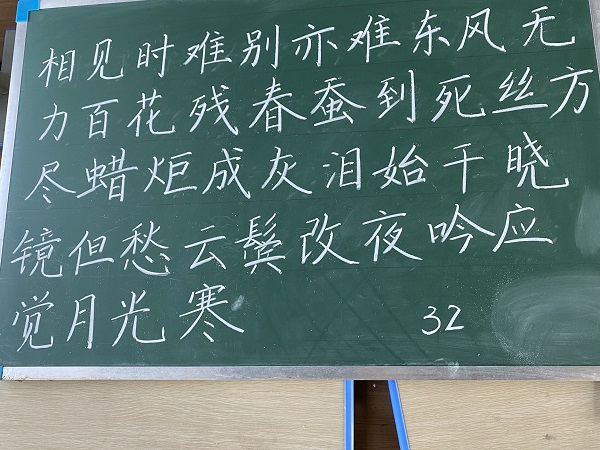 相见时难别亦难东风无
力百花残春蚕到死丝方
尽蜡炬成灰泪始干晓
镜但愁云鬓改夜吟应
觉月光寒
32